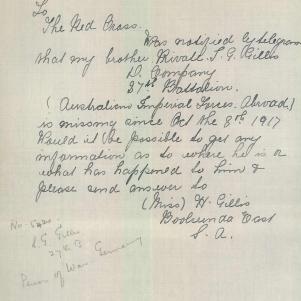 To
The Red Cross.
Was notified by telegram
that my brother Private S. G. Gillis
D. Company
27th Battalion.
(Australian Imperial Forces. Abroad)
is missing since Oct the 8th 1917
Would it be possible to get any
information as to where he is or
what has happened to him &
please send answer to
(Miss) H. Gillis
Booleunda East
S. A.
No.
S. G. Gillis
27th B
Prisoner of War Germany